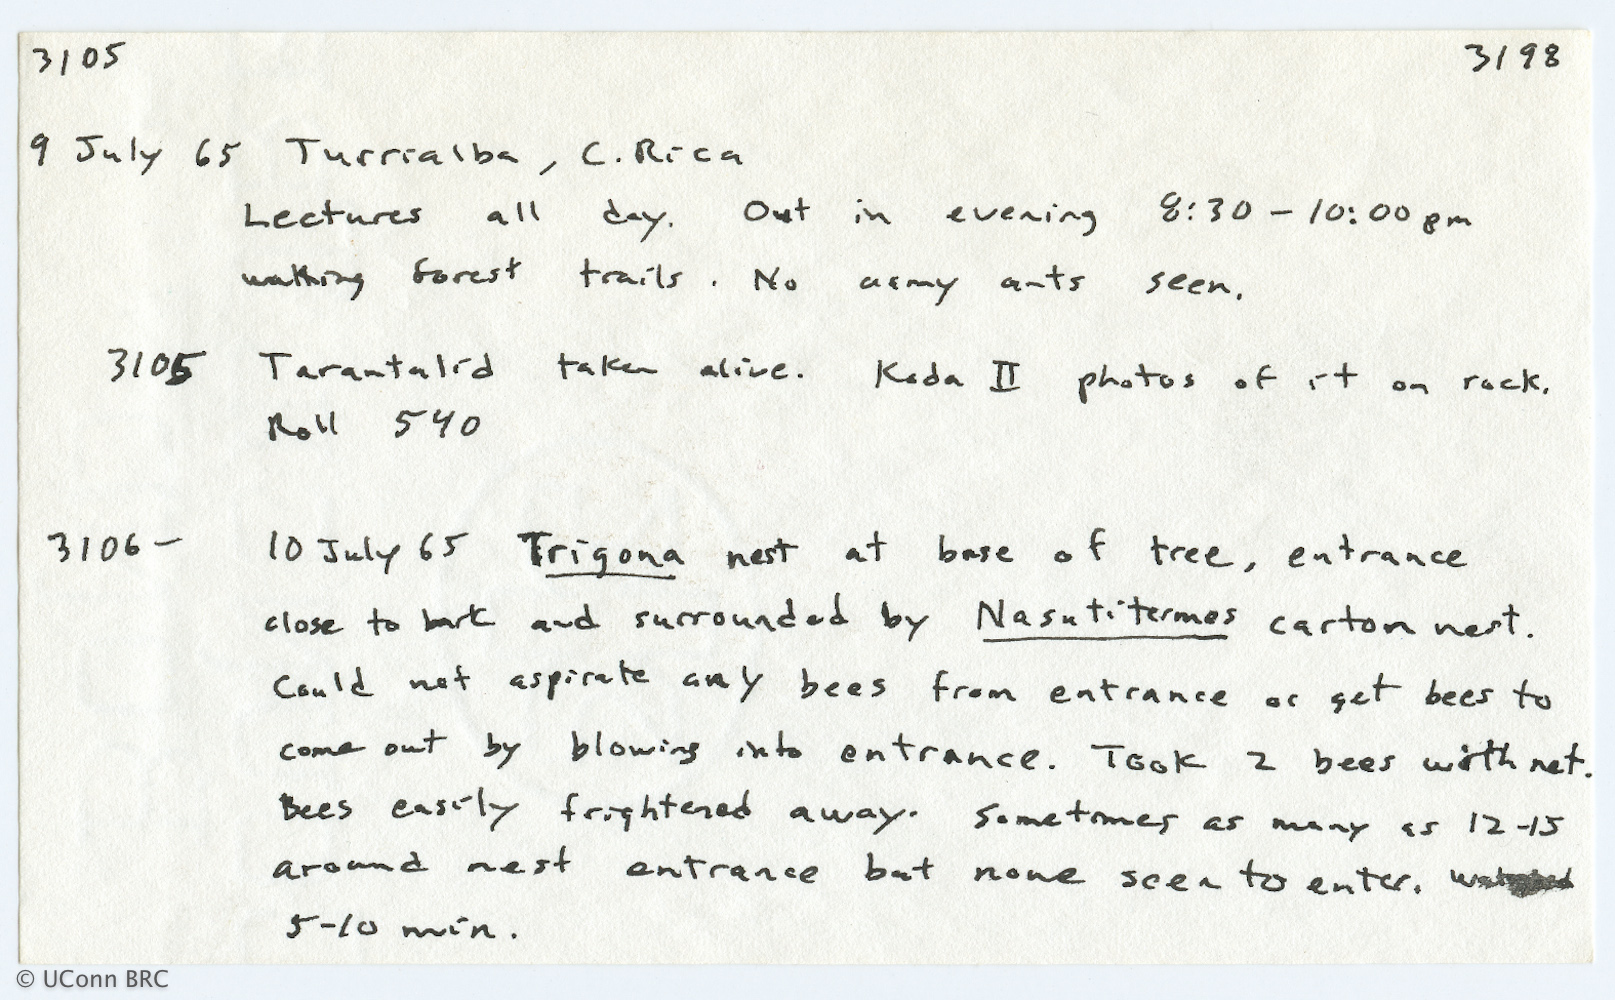 3105 3198
9 July 65 Turrialba, C. Rica
Lectures all day. Out in evening 8:30 - 10:00 pm
walking forest trails. No army ants seen.
3105 Tarantulid taken alive. Koda II photos of it on rock.
Roll 540
3106- 10 July 65 Trigona nest at base of tree, entrance
close to bark and surrounded by Nasutitermes carton nest.
Could not aspirate any bees from entrance or get bees to
come out by blowing into entrance. Took 2 bees with net.
Bees easily frightened away. Sometimes as many as 12-15
around nest entrance but none seen to enter. Watched
5-10 min.
© UConn BRC